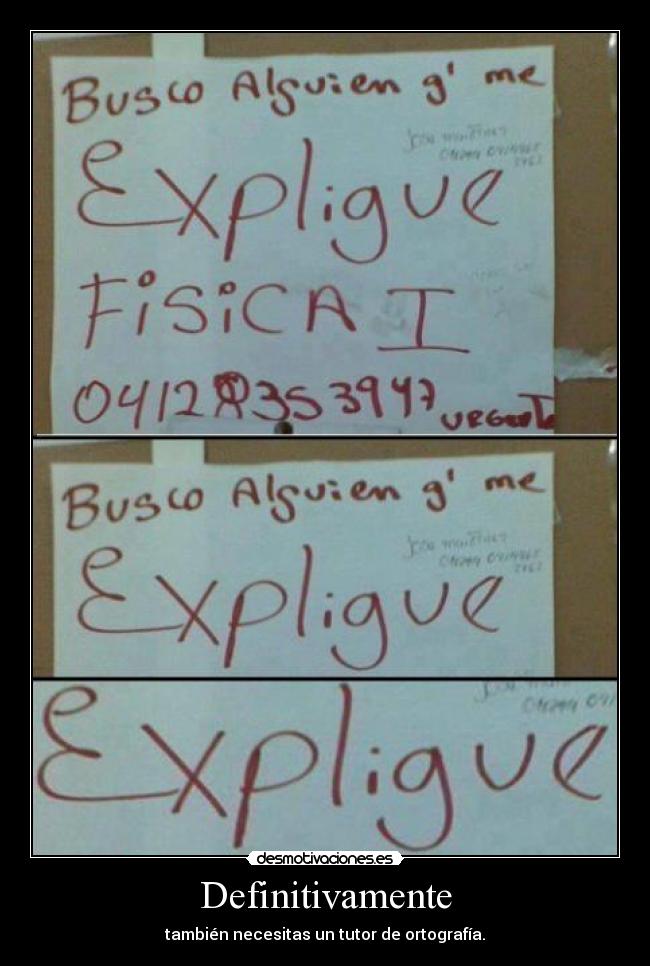 Busco Alguien g' me
Expligue
FísicA I
0412 8353947 urgente
Busco Alguien g' me
Expligue
Expligue
desmotivaciones.es
Definitivamente
también necesitas un tutor de ortografía.